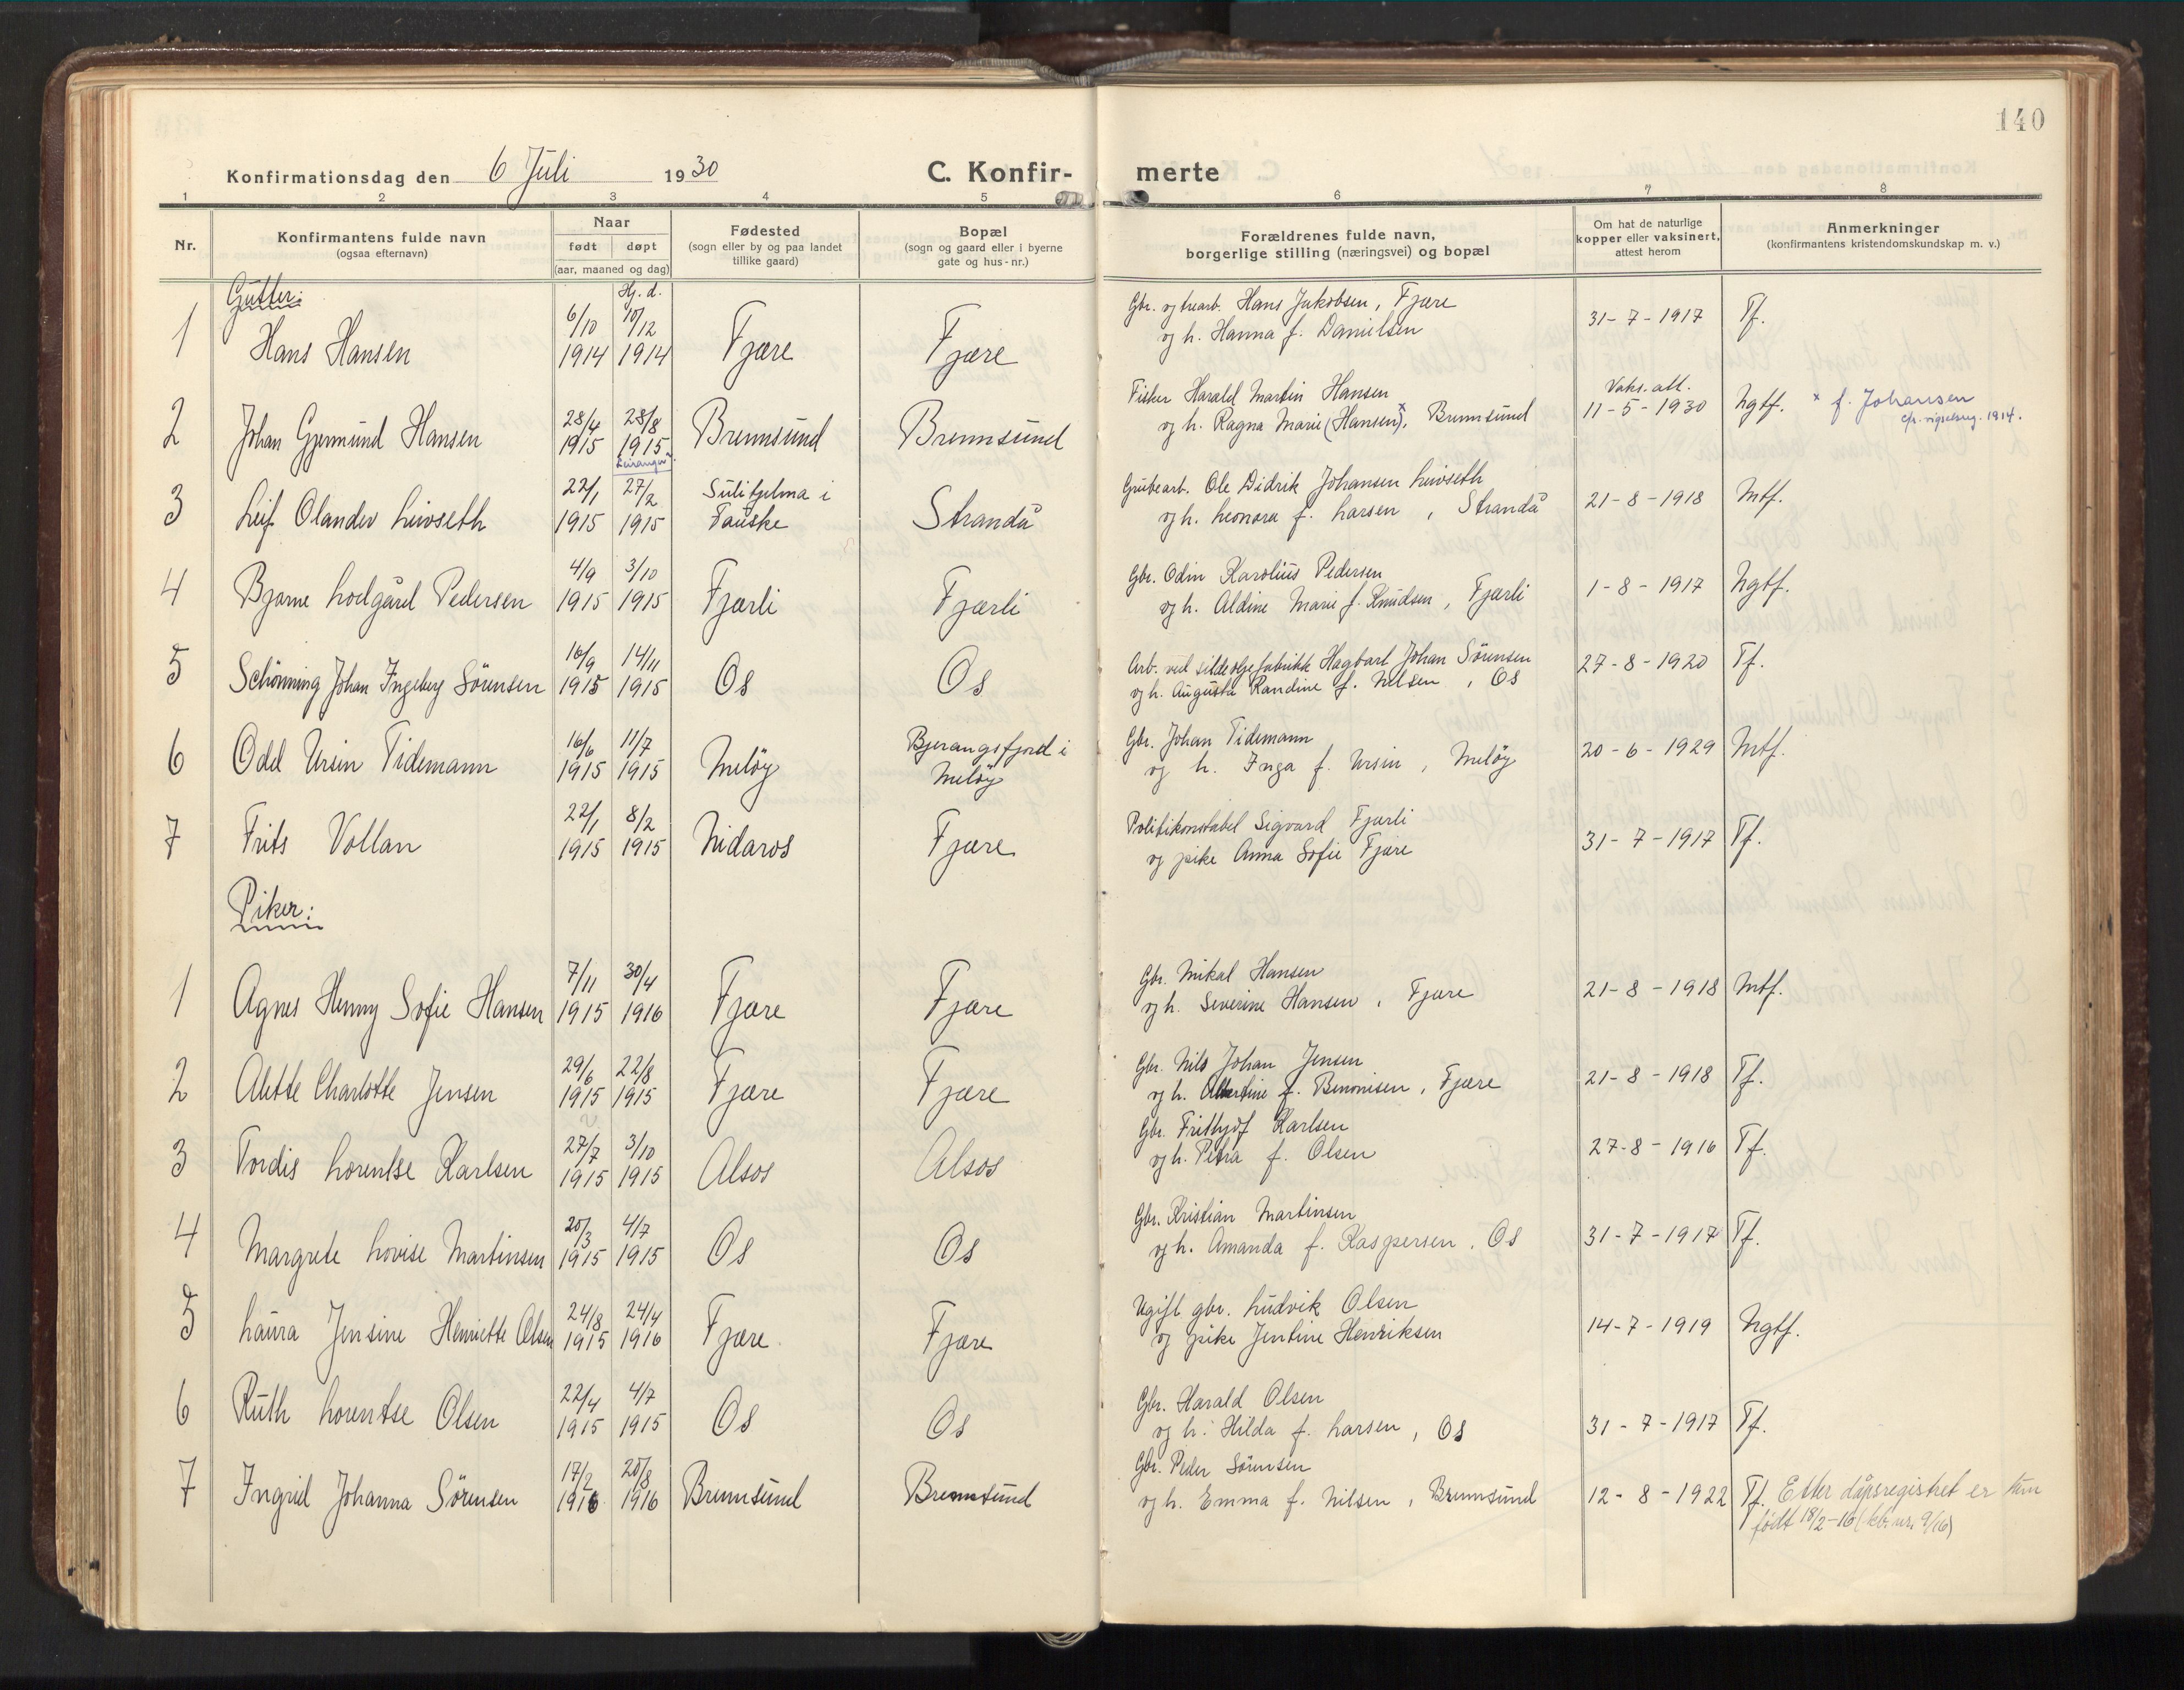 140
Konfirmationsdag den 6 Juli 1930
C. Konfirmerte
1 2 3 4 5 6 7 8
Nr.
Konfirmantens fulde navn
(ogsaa efternavn)
Naar
født døpt
(aar, maaned og dag)
Fødested
(sogn eller by og paa landet
tillike gaard)
Bopæl
(sogn og gaard eller i byerne
gate og hus-nr.)
Forældrenes fulde navn,
borgerlige stilling (næringsvei) og bopæl
Om hat de naturlige
kopper eller vaksinert,
attest herom
Anmerkninger
(konfirmantens kristendomskundskap m. v.)
Gutter:
Hj. d.
1 Hans Hansen 6/10 1914 10/12 1914 Fjære Fjære
Gbr. og trearb. Hans Jakobsen, Fjære
og h. Hanna f. Danielsen
31-7-1917 Tf.
2 Johan Gjermund Hansen 28/4 1915 28/8 1915 Brennsund Brennsund
Fisker Harald Martin Hansen
og h. Ragna Marie (Hansen)x, Brennsund
Vaks.att.
11-5-1930 Ngtf. x f. Johansen
1914.
3 Leif Olander Livseth 22/1 1915 27/2 1915 Sulitjelma i Fauske Strandå
Grubearb. Ole Didrik Johansen Livseth
og h. Leonora f. Larsen, Strandå
21-8-1918 Mtf.
4 Bjarne Lodgård Pedersen 4/9 1915 3/10 1915 Fjærli Fjærli
Gbr. Odin Karolius Pedersen
og h. Aldine Marie f. Knudsen, Fjærli
1-8-1917 Ngtf.
5 Schönning Johan Ingeberg Sörensen 16/9 1915 14/11 1915 Os Os
Arb. ved sildeoljefabrikk Hagbart Johan Sörensen
og h. Augusta Randine f. Nilsen, Os
27-8-1920 Tf.
6 Odd Ursin Tidemann 16/6 1915 11/7 1915 Melöy Bjerangsfjord i Melöy
Gbr. Johan Tidemann
og h. Inga f. Ursin, Melöy
20-6-1929 Mtf.
7 Frits Vollan 22/1 1915 8/2 1915 Nidaros Fjære
Politikonstabel Sigvard Fjærli
og pike Anna Sofie Fjære
31-7-1917 Tf.
Piker:
1 Agnes Henny Sofie Hansen 7/11 1915 30/4 1916 Fjære Fjære
Gbr. Mikal Hansen
og h. Severine Hansen, Fjære
21-8-1918 Mtf.
2 Alette Charlotte Jensen 29/6 1915 22/8 1915 Fjære Fjære
Gbr. Nils Johan Jensen
og h. Albertine f. Benonisen, Fjære
21-8-1918 Tf.
3 Tordis Lorentse Karlsen 27/7 1915 3/10 1915 Alsos Alsos
Gbr. Frithjof Karlsen
og h. Petra f. Olsen
27-8-1916 Tf.
4 Margrete Lovise Martinsen 20/3 1915 4/7 1915 Os Os
Gbr. Kristian Martinsen
og h. Amanda f. Kaspersen, Os
31-7-1917 Tf.
5 Laura Jensine Henriette Olsen 24/8 1915 24/4 1916 Fjære Fjære
Ugift gbr. Ludvik Olsen
og pike Jentine Henriksen
14-7-1919 Ngtf.
6 Ruth Lorentse Olsen 22/4 1915 4/7 1915 Os Os
Gbr. Harald Olsen
og h. Hilda f. Larsen, Os
31-7-1917 Tf.
7 Ingrid Johanna Sörensen 17/2 1916 20/8 1916 Brennsund Brennsund
Gbr. Peder Sörensen
og h. Emma f. Nilsen, Brennsund
12-8-1922 Tf. Etter dåpsregistret er hun
født 18/2-16 (kb. nr. 9/16)